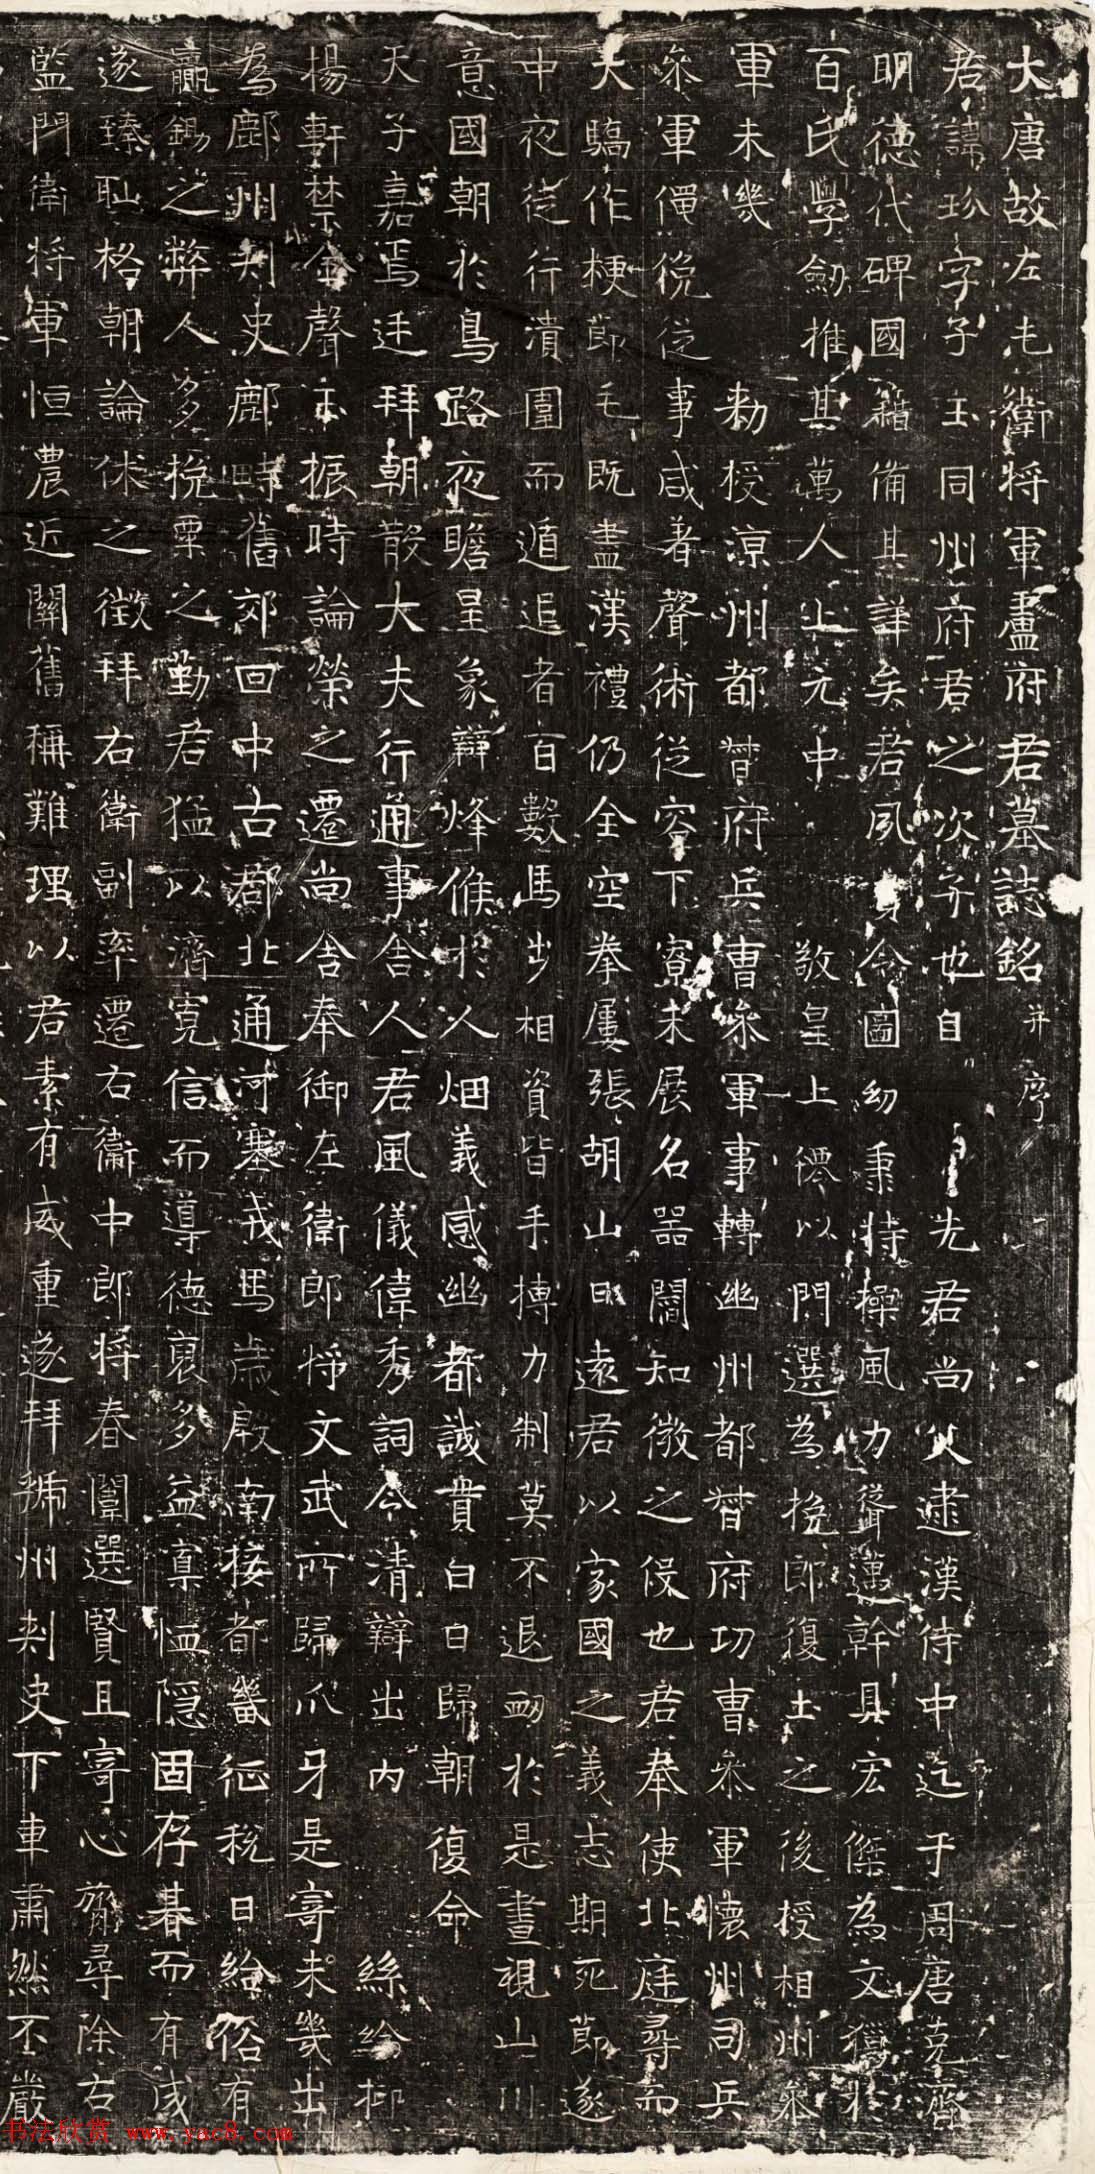 大唐故左屯衛將軍盧府君墓誌銘 并序
君諱玢字子玉同州府君之次子也自 先君尚父逮漢侍中迄于周唐克濟
明德代碑國籍備其詳矣君夙身令圖幼秉特操風力聳邁幹具宏傑為文獨於
百氏學劒推其萬人上元中 敬皇上僊以門選為挽郎復土之後授相州參
軍未幾 勑授涼州都督府兵曹參軍事轉幽州都督府功曹參軍懷州司兵
參軍僶俛從事咸著聲術從容下寮未展名器闇知微之侵也君奉使北庭尋而
大驕作梗節毛既盡漢禮仍全空拳屢張胡山日遠君以家國之義志期死節遂
中夜徒行潰圍而遁追者百數馬步相資皆手搏力制莫不退衂於是晝視山川
意國朝於鳥路夜瞻星象辯烽候於人烟義感幽都誠貫白日歸朝復命
天子嘉焉迁拜朝散大夫行通事舍人君風儀偉秀詞令清辯出內 絲綸抑
揚軒禁金聲玉振時論榮之遷尚舍奉御左衛郎將文武所歸爪牙是寄未幾出
為鄜州刾史鄜畤舊郊回中古都北通河塞戎馬歲殷南接都畿征稅日給俗有
羸錫之弊人多挽粟之勤君猛以濟寬信而導德裒多益寡恤隱固存朞而有成
遂臻恥格朝論休之徵拜右衛副率遷右衛中郎將春闈選賢且寄心膂尋除右
監門衛將軍恒農近關舊稱難理以君素有威重遂拜虢州刾史下車肅然不嚴
书法欣赏 www.yac8.com